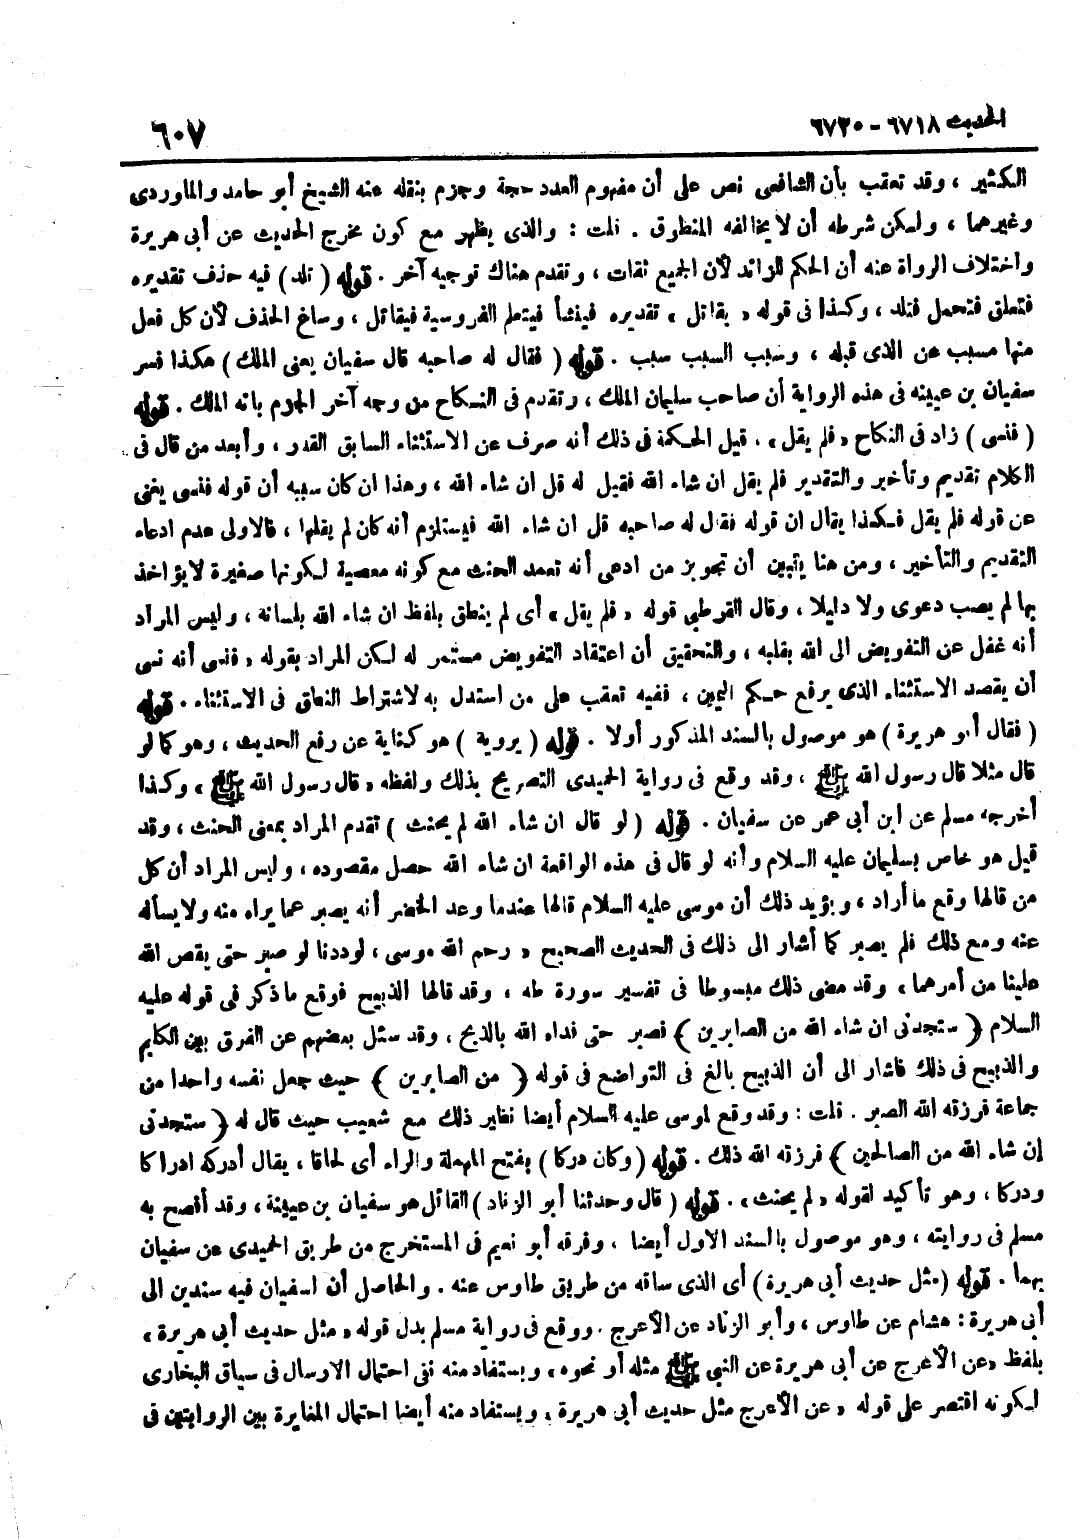 الحديث ٦٧١٨ - ٦٧٢٠
٦٠٧
الكثير ، وقد تعقب بأن الشافعى نص على أن مفهوم العدد حجة وجزم بنقله عنه الشيخ أبو حامد والماوردى
وغيرهما ، ولكن شرطه أن لا يخالفه المنطوق . قلت : والذى يظهر مع كون مخرج الحديث عن أبى هريرة
واختلاف الرواة عنه أن الحكم للزائد لأن الجميع ثقات ، وتقدم هناك توجيه آخر . قوله ( تلد ) فيه حذف تقديره
فتعلق فتحمل فتلد ، وكذا فى قوله « يقاتل » تقديره فينشأ فيتعلم الفروسية فيقاتل ، وساغ الحذف لأن كل فعل
منها مسبب عن الذى قبله ، وسبب السبب سبب . قوله ( فقال له صاحبه قال سفيان يعنى الملك ) هكذا فسر
سفيان بن عيينة فى هذه الرواية أن صاحب سليمان الملك ، وتقدم فى النكاح من وجه آخر الجزم بأنه الملك . قوله
( فنسى ) زاد فى النكاح « فلم يقل » . قيل الحكمة فى ذلك أنه صرف عن الاستثناء السابق القدر ، وأبعد من قال فى
الكلام تقديم وتأخير والتقدير فلم يقل ان شاء الله فقيل له قل ان شاء الله ، وهذا ان كان سببه أن قوله فنسى يغنى
عن قوله فلم يقل فكذا يقال ان قوله فقال له صاحبه قل ان شاء الله فيستلزم أنه كان لم يقلها ، فالاولى عدم ادعاء
التقديم والتأخير ، ومن هنا يتبين أن تجويز من ادعى أنه تعمد الحنث مع كونه معصية لكونها صغيرة لا يؤاخذ
بها لم يصب دعوى ولا دليلا ، وقال القرطبى قوله « فلم يقل » أى لم ينطق بلفظ ان شاء الله بلسانه ، وليس المراد
أنه غفل عن التفويض الى الله بقلبه ، والتحقيق أن اعتقاد التفويض مستمر له لكن المراد بقوله « فنسى أنه نسى
أن يقصد الاستثناء الذى يرفع حكم اليمين ، ففيه تعقب على من استدل به لاشتراط النطق فى الاستثناء . قوله
( فقال أبو هريرة ) هو موصول بالسند المذكور أولا . قوله ( يرويه ) هو كناية عن رفع الحديث ، وهو كما لو
قال مثلا قال رسول الله ﷺ ، وقد وقع فى رواية الحميدى التصريح بذلك ولفظه « قال رسول الله ﷺ » وكذا
أخرجه مسلم عن ابن أبى عمر عن سفيان . قوله ( لو قال ان شاء الله لم يحنث ) تقدم المراد بمعنى الحنث ، وقد
قيل هو خاص بسليمان عليه السلام وأنه لو قال فى هذه الواقعة ان شاء الله حصل مقصوده ، وليس المراد أن كل
من قالها وقع ما أراد ، ويؤيد ذلك أن موسى عليه السلام قالها عندما وعد الخضر أنه يصبر عما يراه منه ولا يسأله
عنه ومع ذلك فلم يصبر كما أشار الى ذلك فى الحديث الصحيح « رحم الله موسى ، لوددنا لو صبر حتى يقص الله
علينا من أمرهما » وقد مضى ذلك مبسوطا فى تفسير سورة طه ، وقد قالها الذبيح فوقع ما ذكر فى قوله عليه
السلام ﴿ ستجدنى ان شاء الله من الصابرين ﴾ فصبر حتى فداه الله بالذبح ، وقد سئل بعضهم عن الفرق بين الكليم
والذبيح فى ذلك فأشار الى أن الذبيح بالغ فى التواضع فى قوله ﴿ من الصابرين ﴾ حيث جعل نفسه واحدا من
جماعة فرزقه الله الصبر . قلت : وقد وقع لموسى عليه السلام أيضا نظير ذلك مع شعيب حيث قال له ﴿ ستجدنى
إن شاء الله من الصالحين ﴾ فرزقه الله ذلك . قوله ( وكان دركا ) بفتح المهملة والراء أى لحاقا ، يقال أدركه ادراكا
ودركا ، وهو تأكيد لقوله « لم يحنث » . قوله ( قال وحدثنا أبو الزناد ) القائل هو سفيان بن عيينة ، وقد أفصح به
مسلم فى روايته ، وهو موصول بالسند الاول أيضا ، وفرقه أبو نعيم فى المستخرج من طريق الحميدى عن سفيان
بهما . قوله ( مثل حديث أبى هريرة ) أى الذى ساقه من طريق طاوس عنه . والحاصل أن لسفيان فيه سندين الى
أبى هريرة : هشام عن طاوس ، وأبو الزناد عن الأعرج . ووقع فى رواية مسلم بدل قوله « مثل حديث أبى هريرة »
بلفظ « عن الأعرج عن أبى هريرة عن النبى ﷺ مثله أو نحوه » ويستفاد منه نفى احتمال الارسال فى سياق البخارى
لكونه اقتصر على قوله « عن الأعرج مثل حديث أبى هريرة » ويستفاد منه أيضا احتمال المغايرة بين الروايتين فى